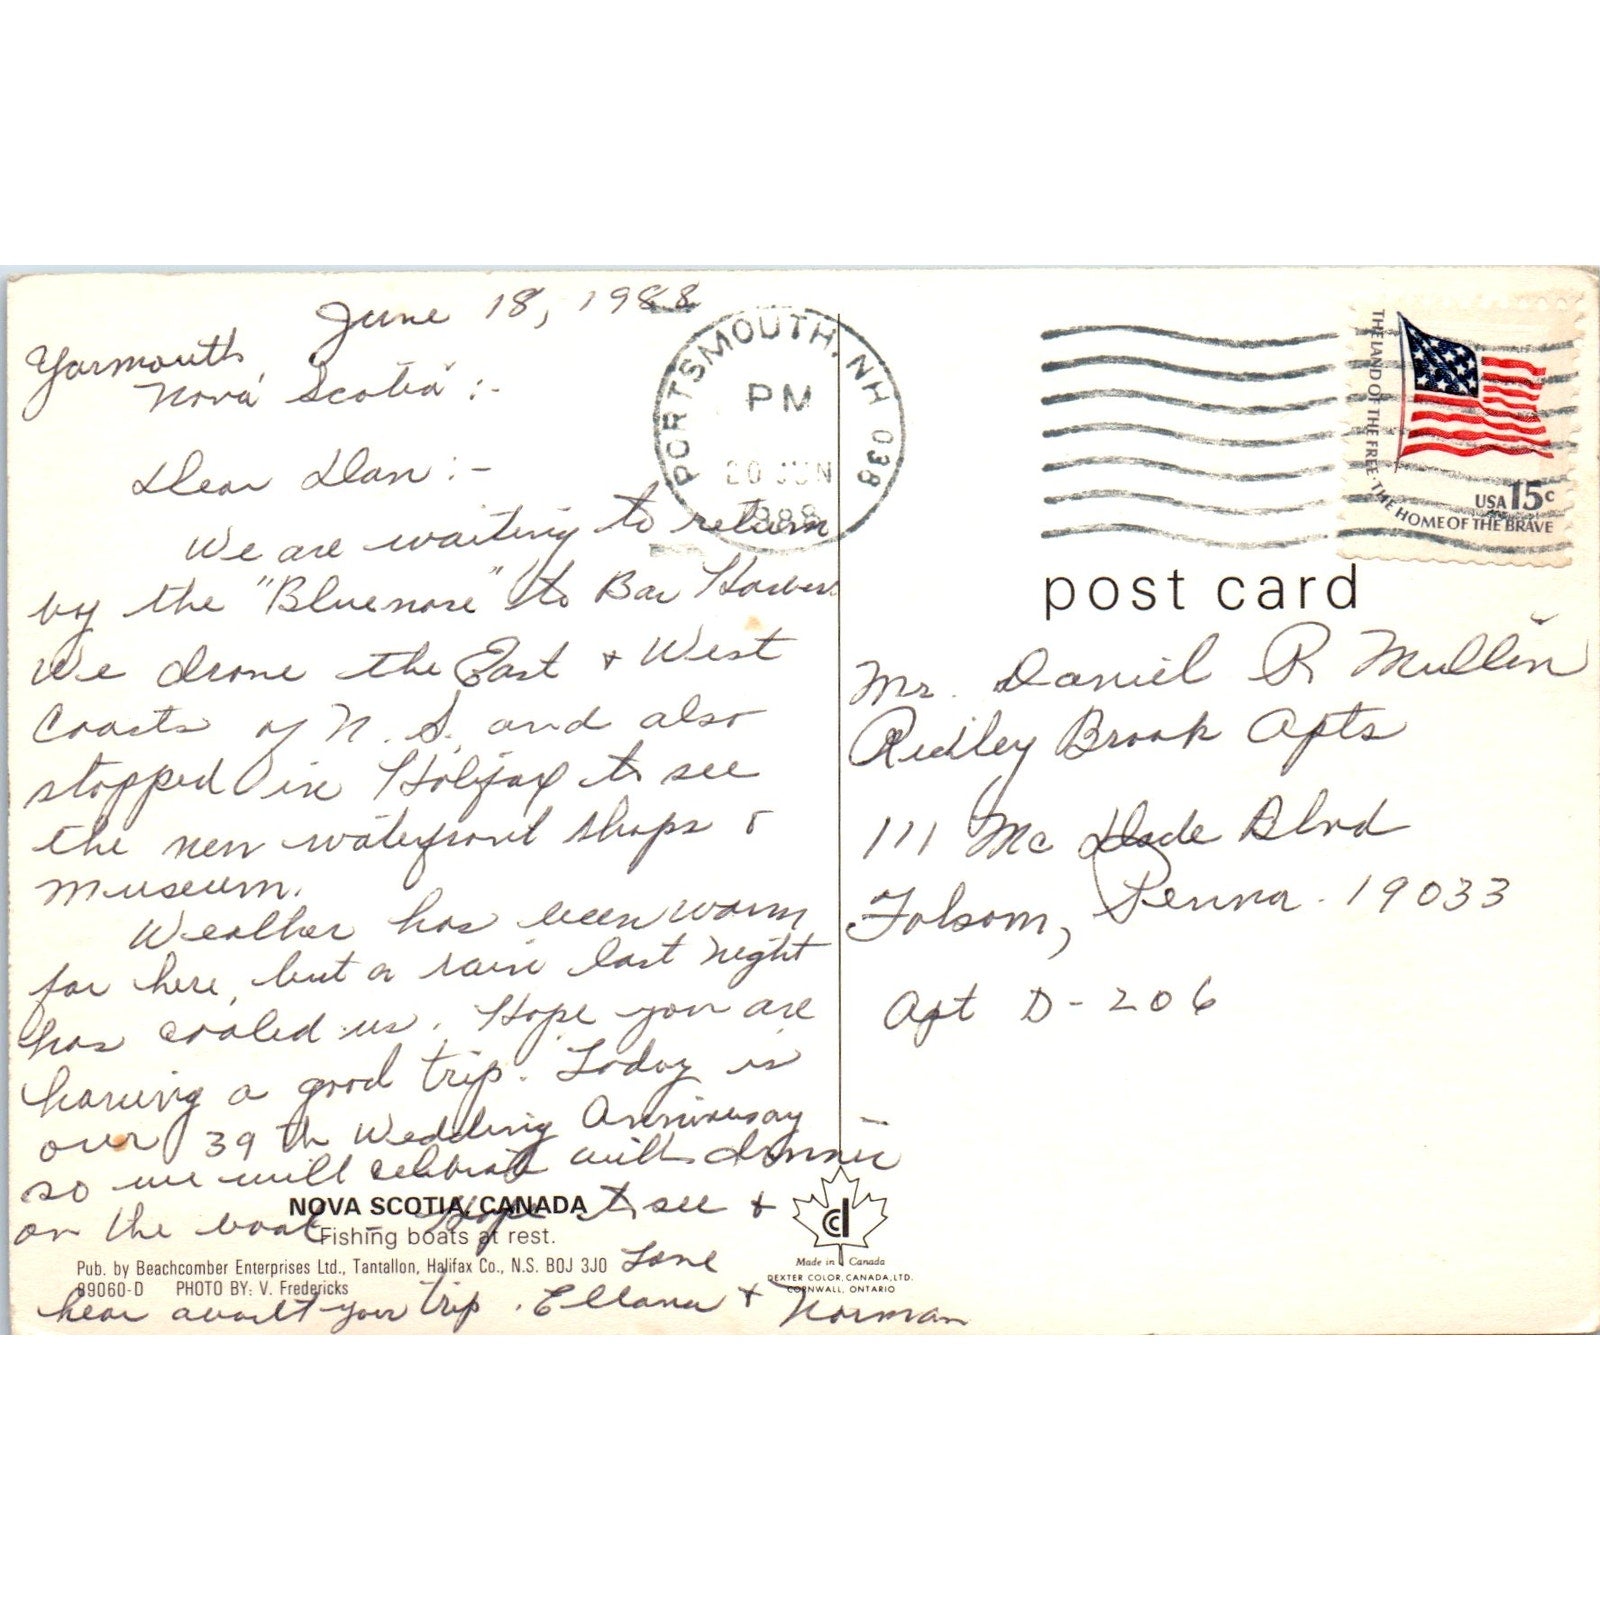 June 18, 1988
Yarmouth,
Nova Scotia :-
Dear Dan :-
We are waiting to return
by the "Bluenose" to Bar Harbor.
We drove the East & West
Coasts of N. S. and also
stopped in Halifax to see
the new waterfront shops &
museum.
Weather has been warm
for here, but a rain last night
has cooled us. Hope you are
having a good trip. Today is
our 39th Wedding Anniversay
so we will celebrate with dinner
on the boat - Hope to see &
hear about your trip. Love
Ellana & Norman
NOVA SCOTIA, CANADA
Fishing boats at rest.
Pub. by Beachcomber Enterprises Ltd., Tantallon, Halifax Co., N.S. B0J 3J0
89060-D PHOTO BY: V. Fredericks
Made in Canada
DEXTER COLOR, CANADA, LTD.
CORNWALL, ONTARIO
PORTSMOUTH, NH 038
PM
20 JUN
1988
THE LAND OF THE FREE THE HOME OF THE BRAVE
USA 15c
post card
Mr. Daniel R Mullin
Ridley Brook Apts
111 Mc Dade Blvd
Folsom, Penna. 19033
Apt D-206